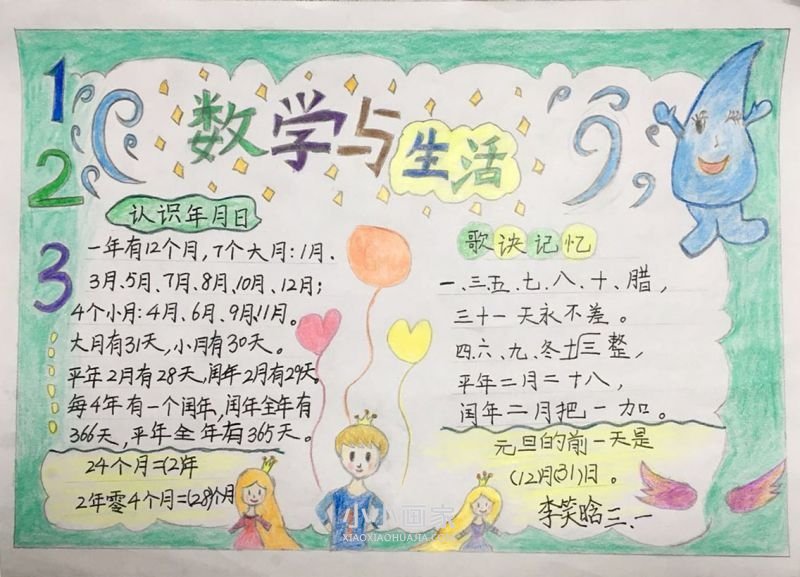 1
2
3
数学与生活
认识年月日
一年有12个月,7个大月:1月、
3月、5月、7月、8月、10月、12月;
4个小月:4月、6月、9月、11月。
大月有31天,小月有30天。
平年2月有28天,闰年2月有29天。
每4年有一个闰年,闰年全年有
366天,平年全年有365天。
24个月=(2)年
2年零4个月=(28)个月
歌诀记忆
一、三、五、七、八、十、腊,
三十一天永不差。
四、六、九、冬三整,
平年二月二十八,
闰年二月把一加。
元旦的前一天是
(12)月(31)日。
李笑晗 三.一
小小画家
XIAOXIAOHUAJIA.COM